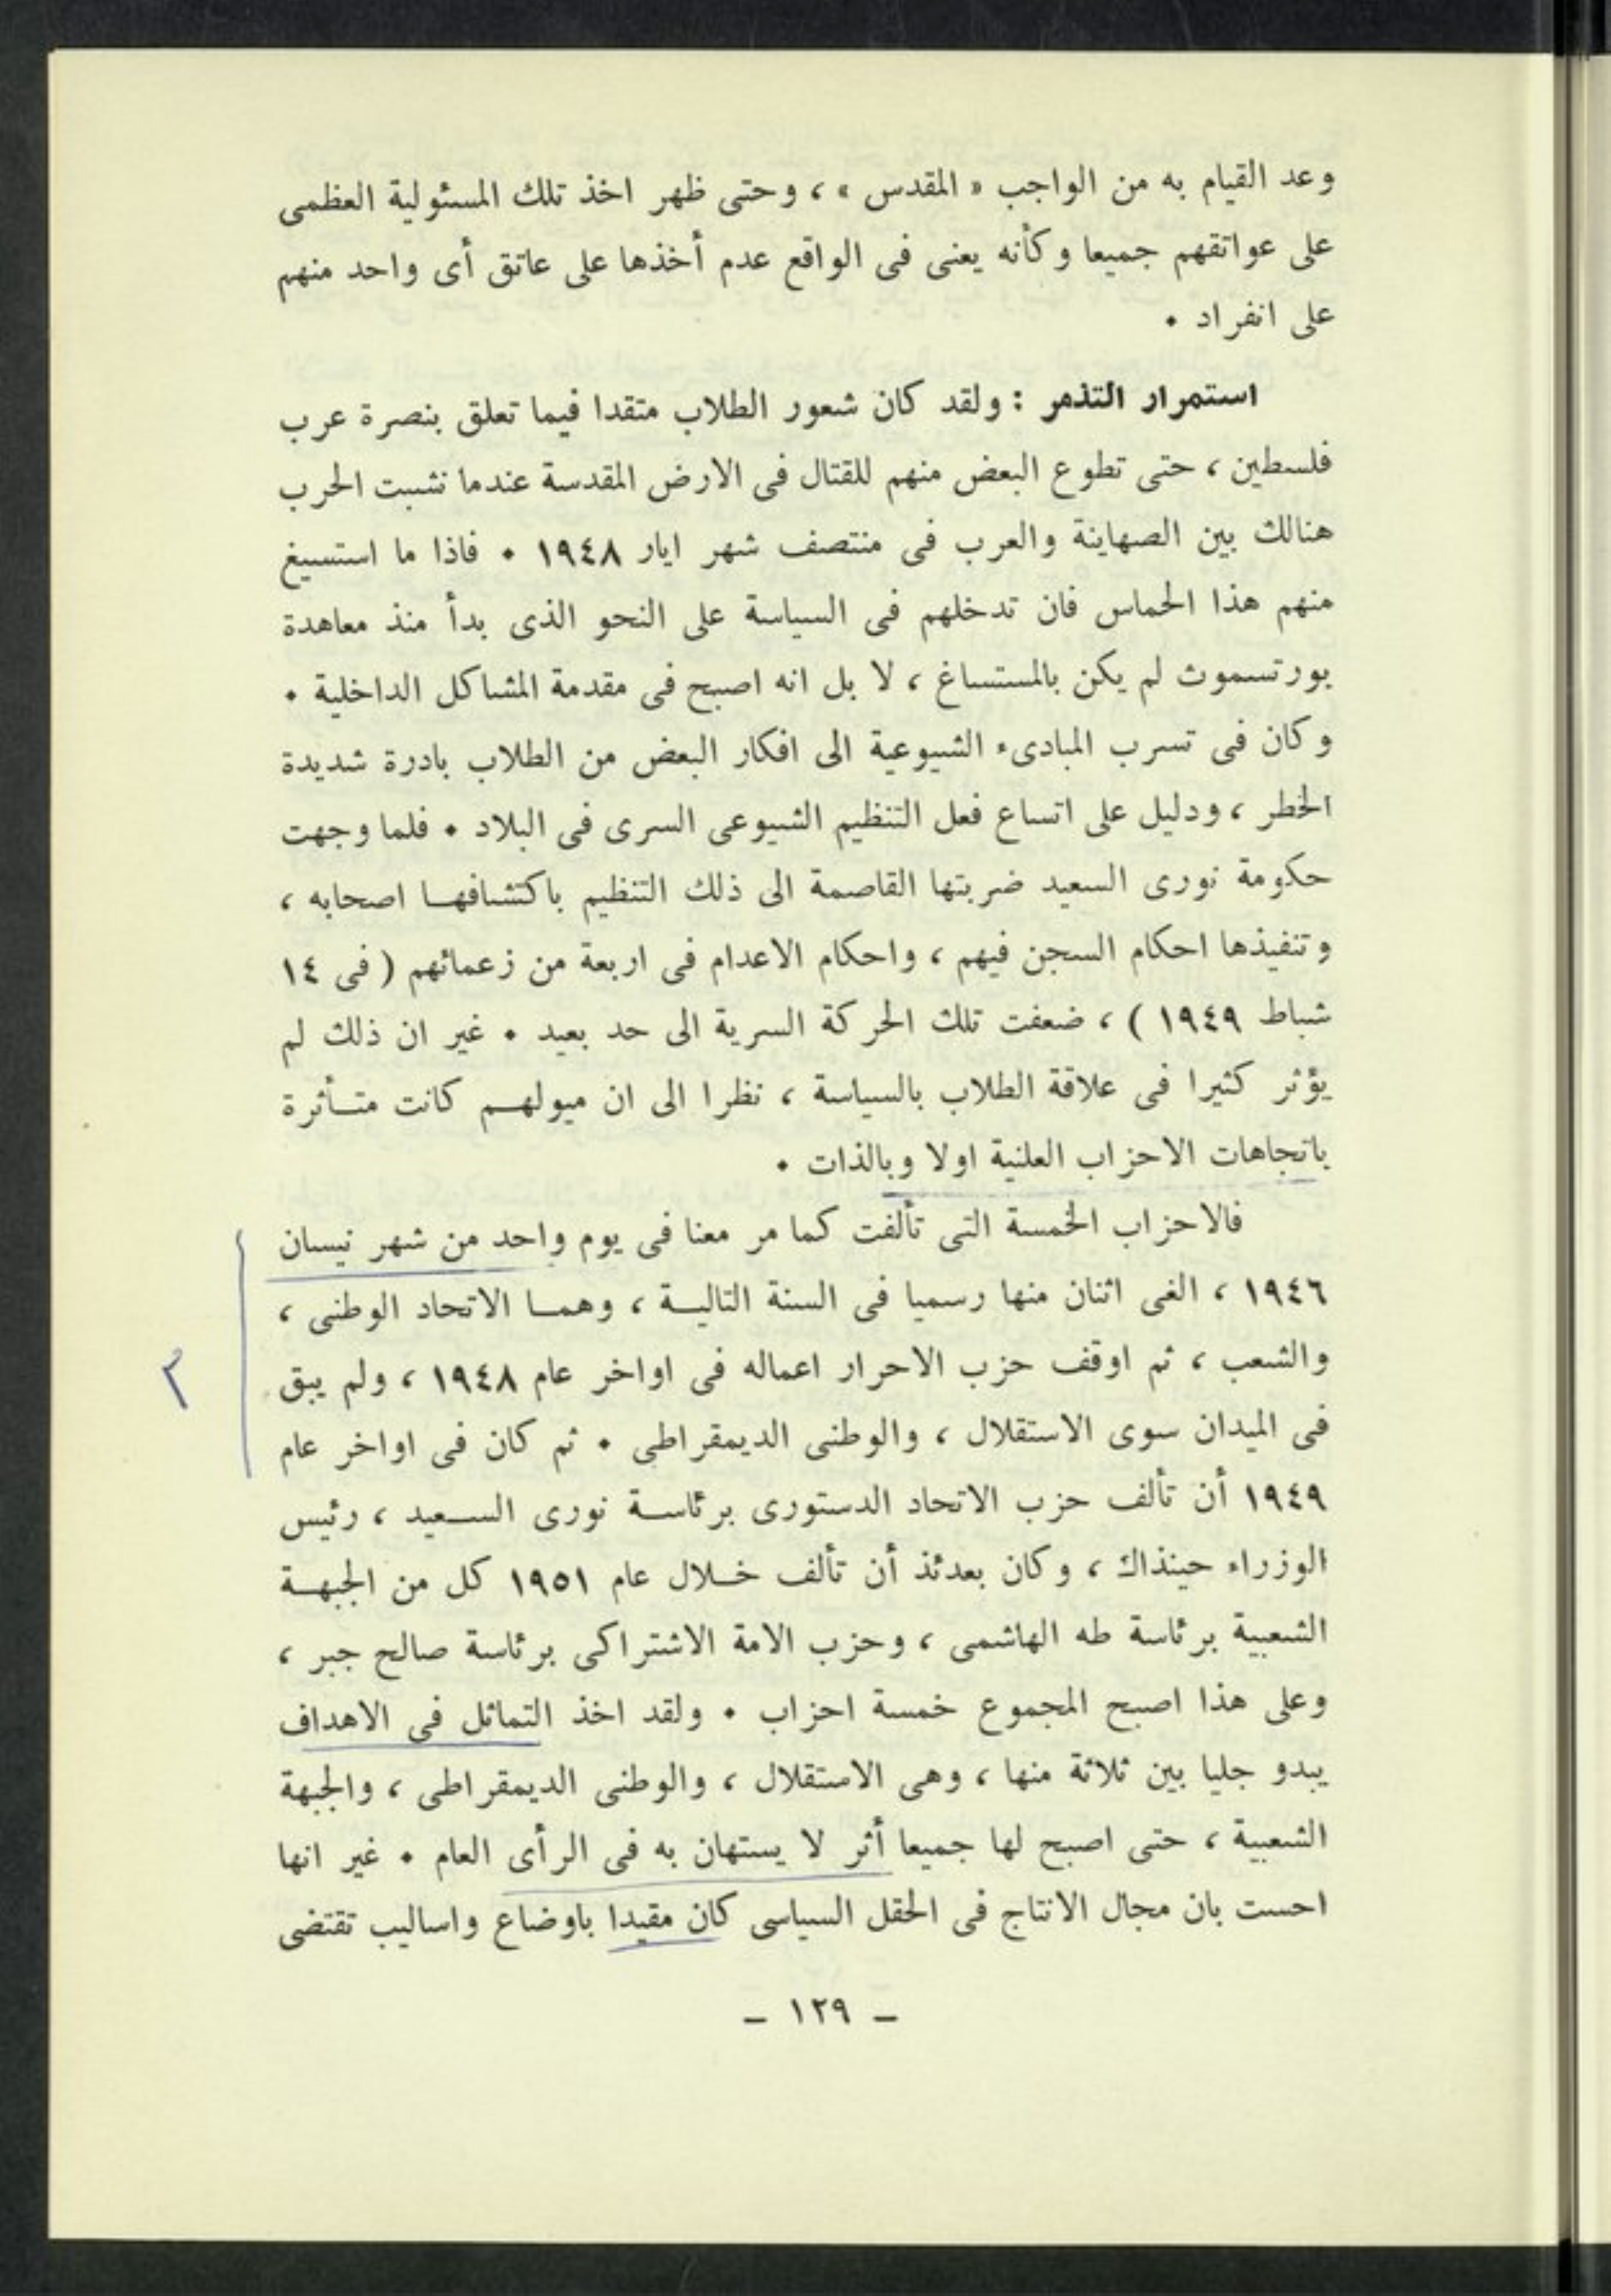 وعد القيام به من الواجب « المقدس » ، وحتى ظهر اخذ تلك المسئولية العظمى
على عواتقهم جميعا وكأنه يعنى فى الواقع عدم أخذها على عاتق أى واحد منهم
على انفراد ٠
استمرار التذمر : ولقد كان شعور الطلاب متقدا فيما تعلق بنصرة عرب
فلسطين ، حتى تطوع البعض منهم للقتال فى الارض المقدسة عندما نشبت الحرب
هنالك بين الصهاينة والعرب فى منتصف شهر ايار ١٩٤٨ ٠ فاذا ما استسيغ
منهم هذا الحماس فان تدخلهم فى السياسة على النحو الذى بدأ منذ معاهدة
بورتسموث لم يكن بالمستساغ ، لا بل انه اصبح فى مقدمة المشاكل الداخلية ٠
وكان فى تسرب المبادىء الشيوعية الى افكار البعض من الطلاب بادرة شديدة
الخطر ، ودليل على اتساع فعل التنظيم الشيوعى السرى فى البلاد ٠ فلما وجهت
حكومة نورى السعيد ضربتها القاصمة الى ذلك التنظيم باكتشافهـا اصحابه ،
وتنفيذها احكام السجن فيهم ، واحكام الاعدام فى اربعة من زعمائهم ( فى ١٤
شباط ١٩٤٩ ) ، ضعفت تلك الحركة السرية الى حد بعيد ٠ غير ان ذلك لم
يؤثر كثيرا فى علاقة الطلاب بالسياسة ، نظرا الى ان ميولهـم كانت متـأثرة
باتجاهات الاحزاب العلنية اولا وبالذات ٠
فالاحزاب الخمسة التى تألفت كما مر معنا فى يوم واحد من شهر نيسان
١٩٤٦ ، الغى اثنان منها رسميا فى السنة التاليـة ، وهمـا الاتحاد الوطنى ،
والشعب ، ثم اوقف حزب الاحرار اعماله فى اواخر عام ١٩٤٨ ، ولم يبق
٢
فى الميدان سوى الاستقلال ، والوطنى الديمقراطى ٠ ثم كان فى اواخر عام
١٩٤٩ أن تألف حزب الاتحاد الدستورى برئاسـة نورى السـعيد ، رئيس
الوزراء حينذاك ، وكان بعدئذ أن تألف خـلال عام ١٩٥١ كل من الجبهـة
الشعبية برئاسة طه الهاشمى ، وحزب الامة الاشتراكى برئاسة صالح جبر ،
وعلى هذا اصبح المجموع خمسة احزاب ٠ ولقد اخذ التماثل فى الاهداف
يبدو جليا بين ثلاثة منها ، وهى الاستقلال ، والوطنى الديمقراطى ، والجبهة
الشعبية ، حتى اصبح لها جميعا أثر لا يستهان به فى الرأى العام ٠ غير انها
احست بان مجال الانتاج فى الحقل السياسى كان مقيدا باوضاع واساليب تقتضى
– ١٢٩ –